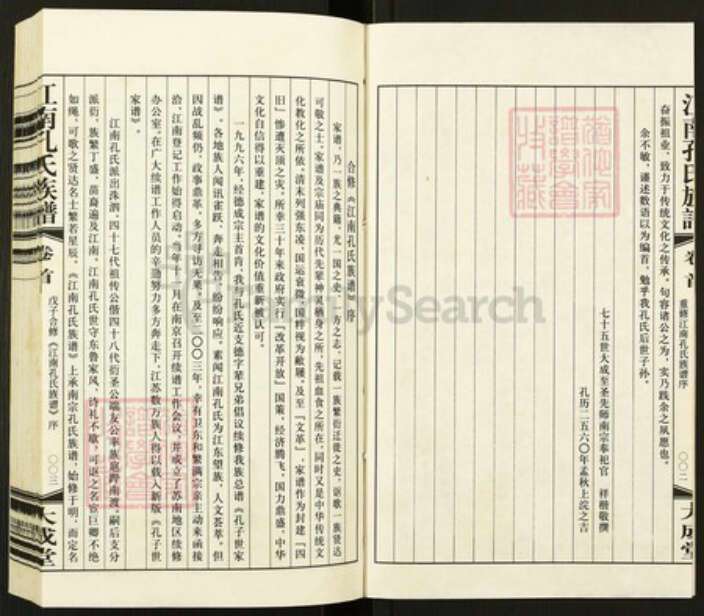 江南孔氏族谱 卷首 重修江南孔氏族谱序 〇〇二 大成堂
奋振祖业，致力于传统文化之传承，句容诸公之为，实乃践余之夙愿也。
余不敏，谨述数语以为编首，勉乎我孔氏后世子孙。
七十五世大成至圣先师南宗奉祀官 祥楷敬撰
孔历二五六〇年孟秋上浣之吉
合修《江南孔氏族谱》序
家谱，乃一族之典籍，尤一国之史、一方之志，记载一族繁衍迁徙之史，讴歌一族贤达
可敬之士，家谱及宗庙同为历代先辈神灵栖身之所，先祖血食之所在，同时又是中华传统文
化教化之所依。清末列强东凌，国运衰微，国粹视为敝屣，及至『文革』，家谱作为封建『四
旧』惨遭灭顶之灾。所幸三十年来政府实行『改革开放』国策，经济腾飞，国力鼎盛，中华
文化自信得以重建，家谱的文化价值重新被认可。
一九九六年，经德成宗主首肯，我与孔氏近支德字辈兄弟倡议续修我族总谱《孔子世家
谱》，各地族人闻讯雀跃，奔走相告，纷纷响应。素闻江南孔氏为江东望族，人文荟萃，但
因战乱频仍，政事鼎革，多方寻访无果，及至二〇〇三年，幸有卫东和繁满宗亲主动来函接
洽，江南登记工作始得启动。当年十一月在南京召开续谱工作会议，并成立了苏南地区续修
办公室，在广大续谱工作人员的辛勤努力多方奔走下，江苏数万族人得以载入新版《孔子世
家谱》。
江南孔氏派出洙泗，四十七代祖传公偕四十八代衍圣公端友公率族扈跸南渡，嗣后支分
派衍，族繁丁盛，苗裔遍及江南。江南孔氏世守东鲁家风，诗礼不歇，可讴之名宦巨卿不绝
如绳，可歌之贤达名士繁若星辰。《江南孔氏族谱》上承南宗孔氏族谱，始修于明，而定名
江南孔氏族谱 卷首 戊子合修《江南孔氏族谱》序 〇〇三 大成堂